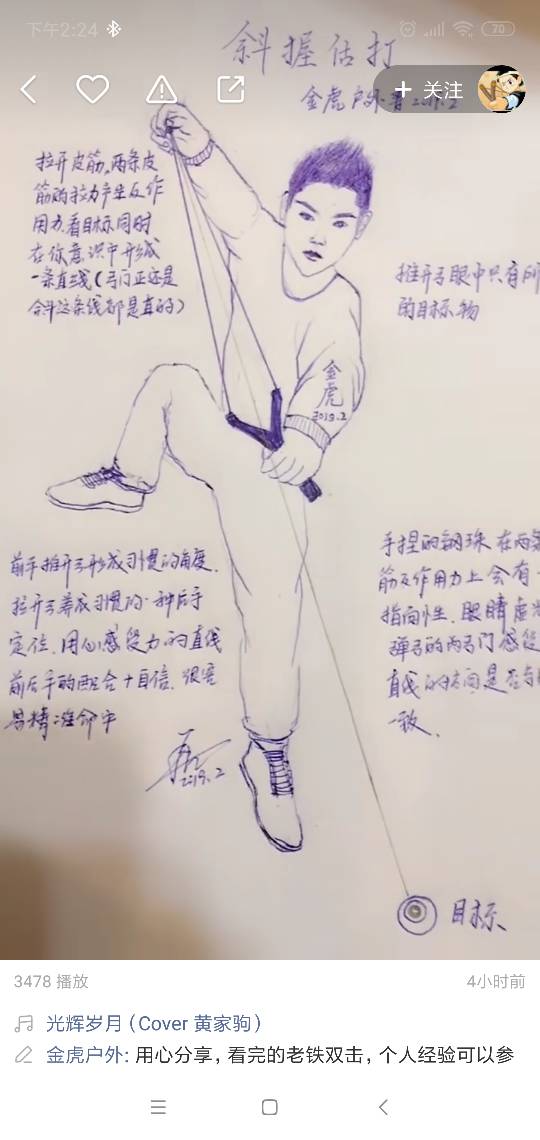 下午2:24
70
斜握估打
关注
金虎户外 2019.2
拉开皮筋,两条皮
筋的拉力产生反作
用力.看目标同时
在你意识中形成
一条直线(弓门正还是
斜这条线都是直的)
推开弓眼中只有
的目标物
金虎
2019.2
前手推开弓形成习惯的角度.
拉开弓养成习惯的一种后手
定位.用心感受力的直线
前后手的配合+自信.很容
易精准命中
手捏的钢珠在两
筋反作用力上会有
指向性.眼睛虚
弹弓的两弓门感
直线的方向是否
一致.
2019.2
目标
3478 播放
4小时前
光辉岁月(Cover 黄家驹)
金虎户外: 用心分享，看完的老铁双击，个人经验可以参